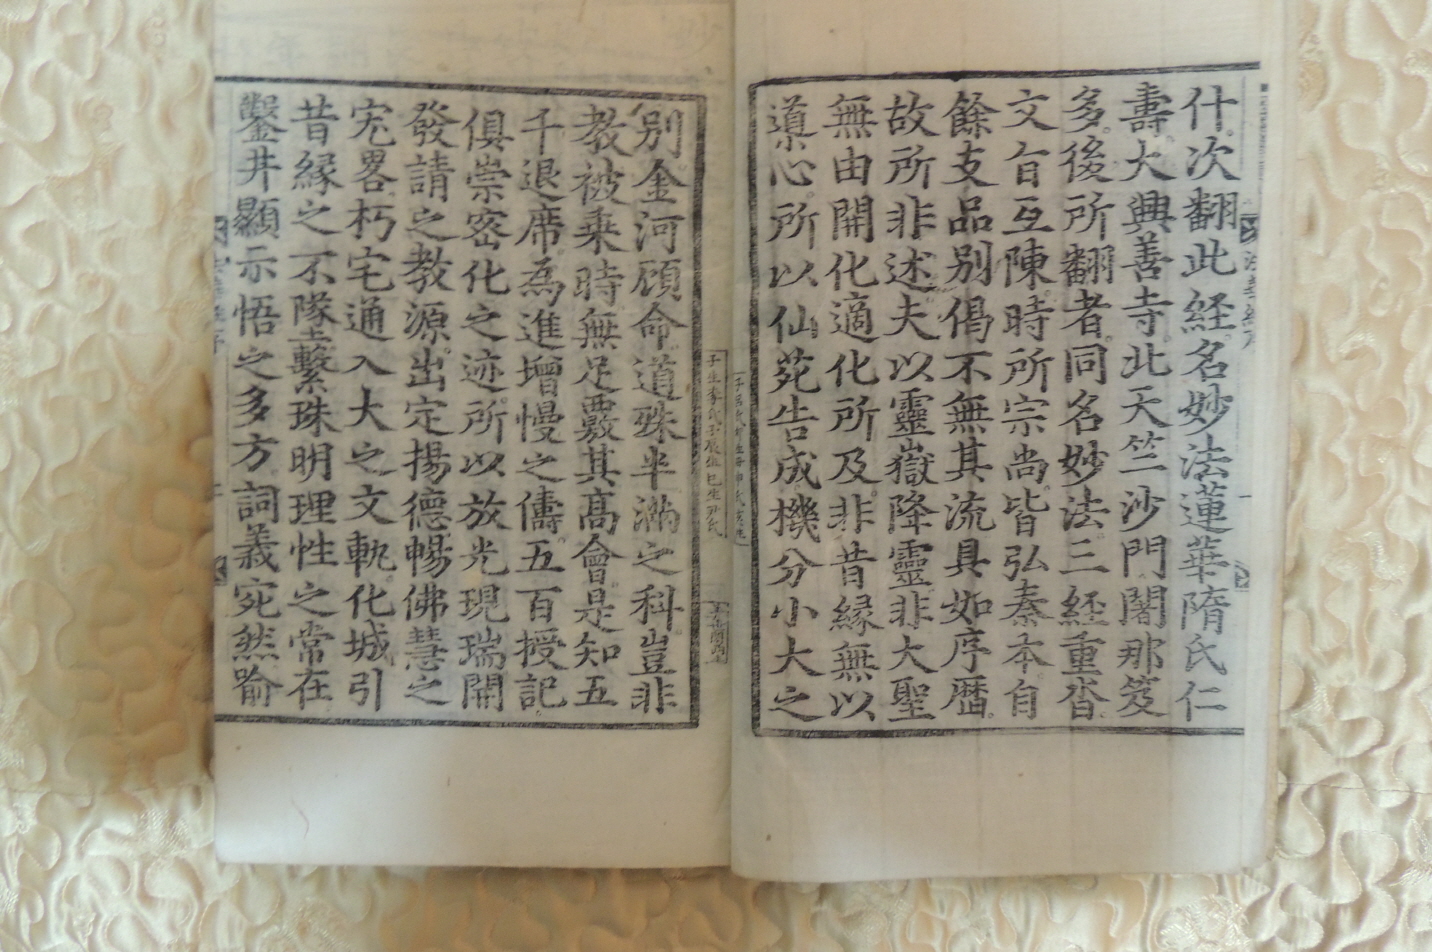 什次翻此経名妙法蓮華隋氏仁
壽大興善寺北天竺沙門闍那笈
多後所翻者同名妙法三経重沓
文旨互陳時所宗尚皆弘秦本自
餘支品別偈不無其流具如序曆
故所非述夫以靈嶽降靈非大聖
無由開化適化所及非昔縁無以
導心所以仙苑告成機分小大之
別金河顧命道殊半滿之科豈非
教被乗時無足覈其髙會是知五
千退席為進增慢之儔五百授記
俱崇密化之迹所以放光現瑞開
發請之教源出定揚德暢佛慧之
宂畧朽宅通入大之文軌化城引
昔縁之不墜繫珠明理性之常在
鑿井顯示悟之多方詞義宛然喻